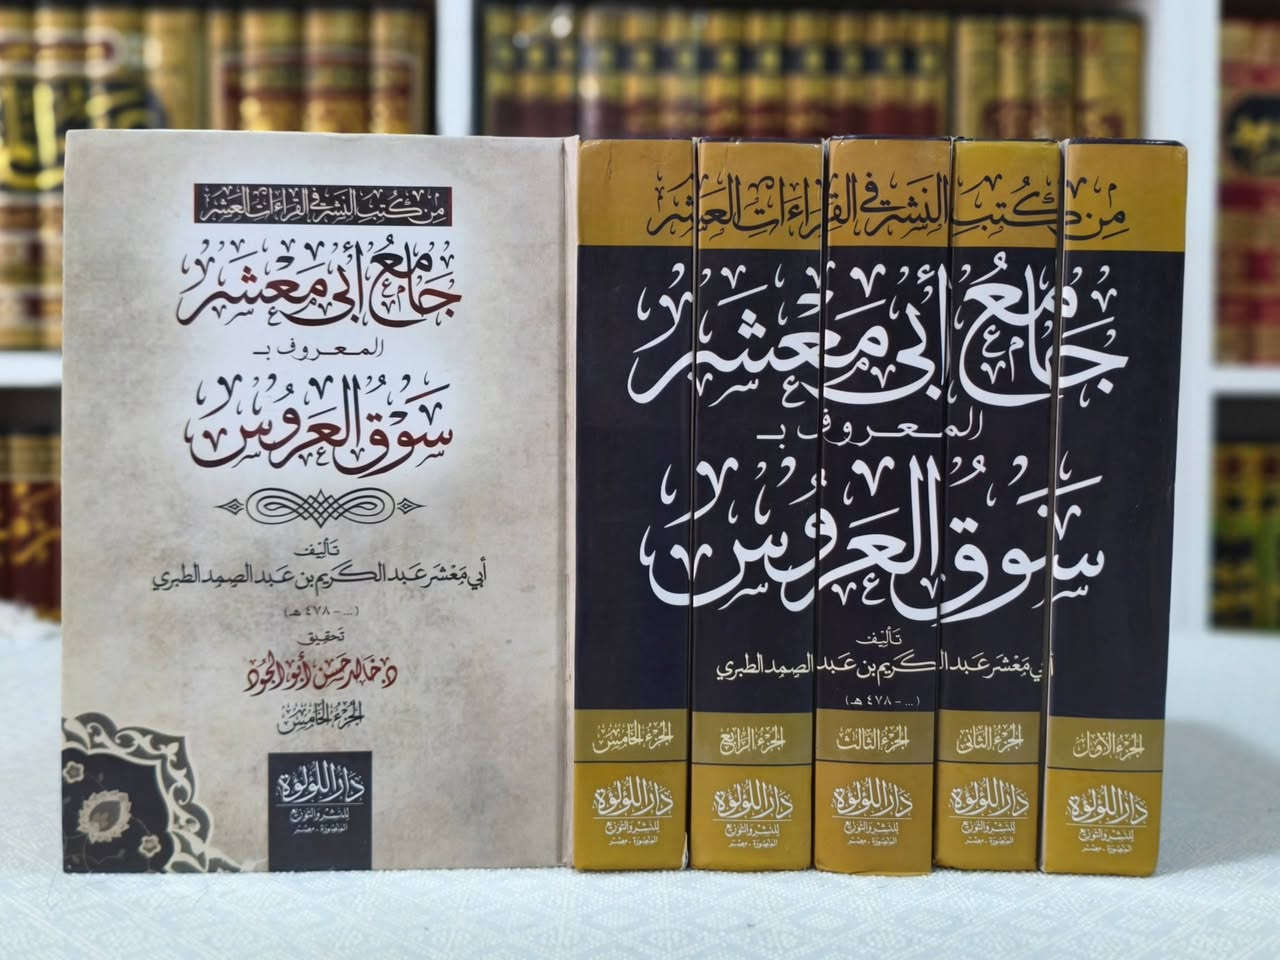 من كتب النشر في القراءات العشر
جامع أبي معشر
المعروف بـ
سوق العروس
تأليف
أبي معشر عبد الكريم بن عبد الصمد الطبري
(... - ٤٧٨ هـ)
تحقيق
د. خالد حسن أبو الجود
الجزء الخامس
دار اللؤلؤة
للنشر والتوزيع
المنصورة - مصر
من كُتب النشر في القراءات العشر
جامع أبي معشر
المعروف بـ
سوق العروس
تأليف
أبي معشر عبد الكريم بن عبد الصمد الطبري
(... - ٤٧٨ هـ)
الجزء الأول
الجزء الثاني
الجزء الثالث
الجزء الرابع
الجزء الخامس
دار اللؤلؤة
للنشر والتوزيع
المنصورة - مصر
دار اللؤلؤة
للنشر والتوزيع
المنصورة - مصر
دار اللؤلؤة
للنشر والتوزيع
المنصورة - مصر
دار اللؤلؤة
للنشر والتوزيع
المنصورة - مصر
دار اللؤلؤة
للنشر والتوزيع
المنصورة - مصر